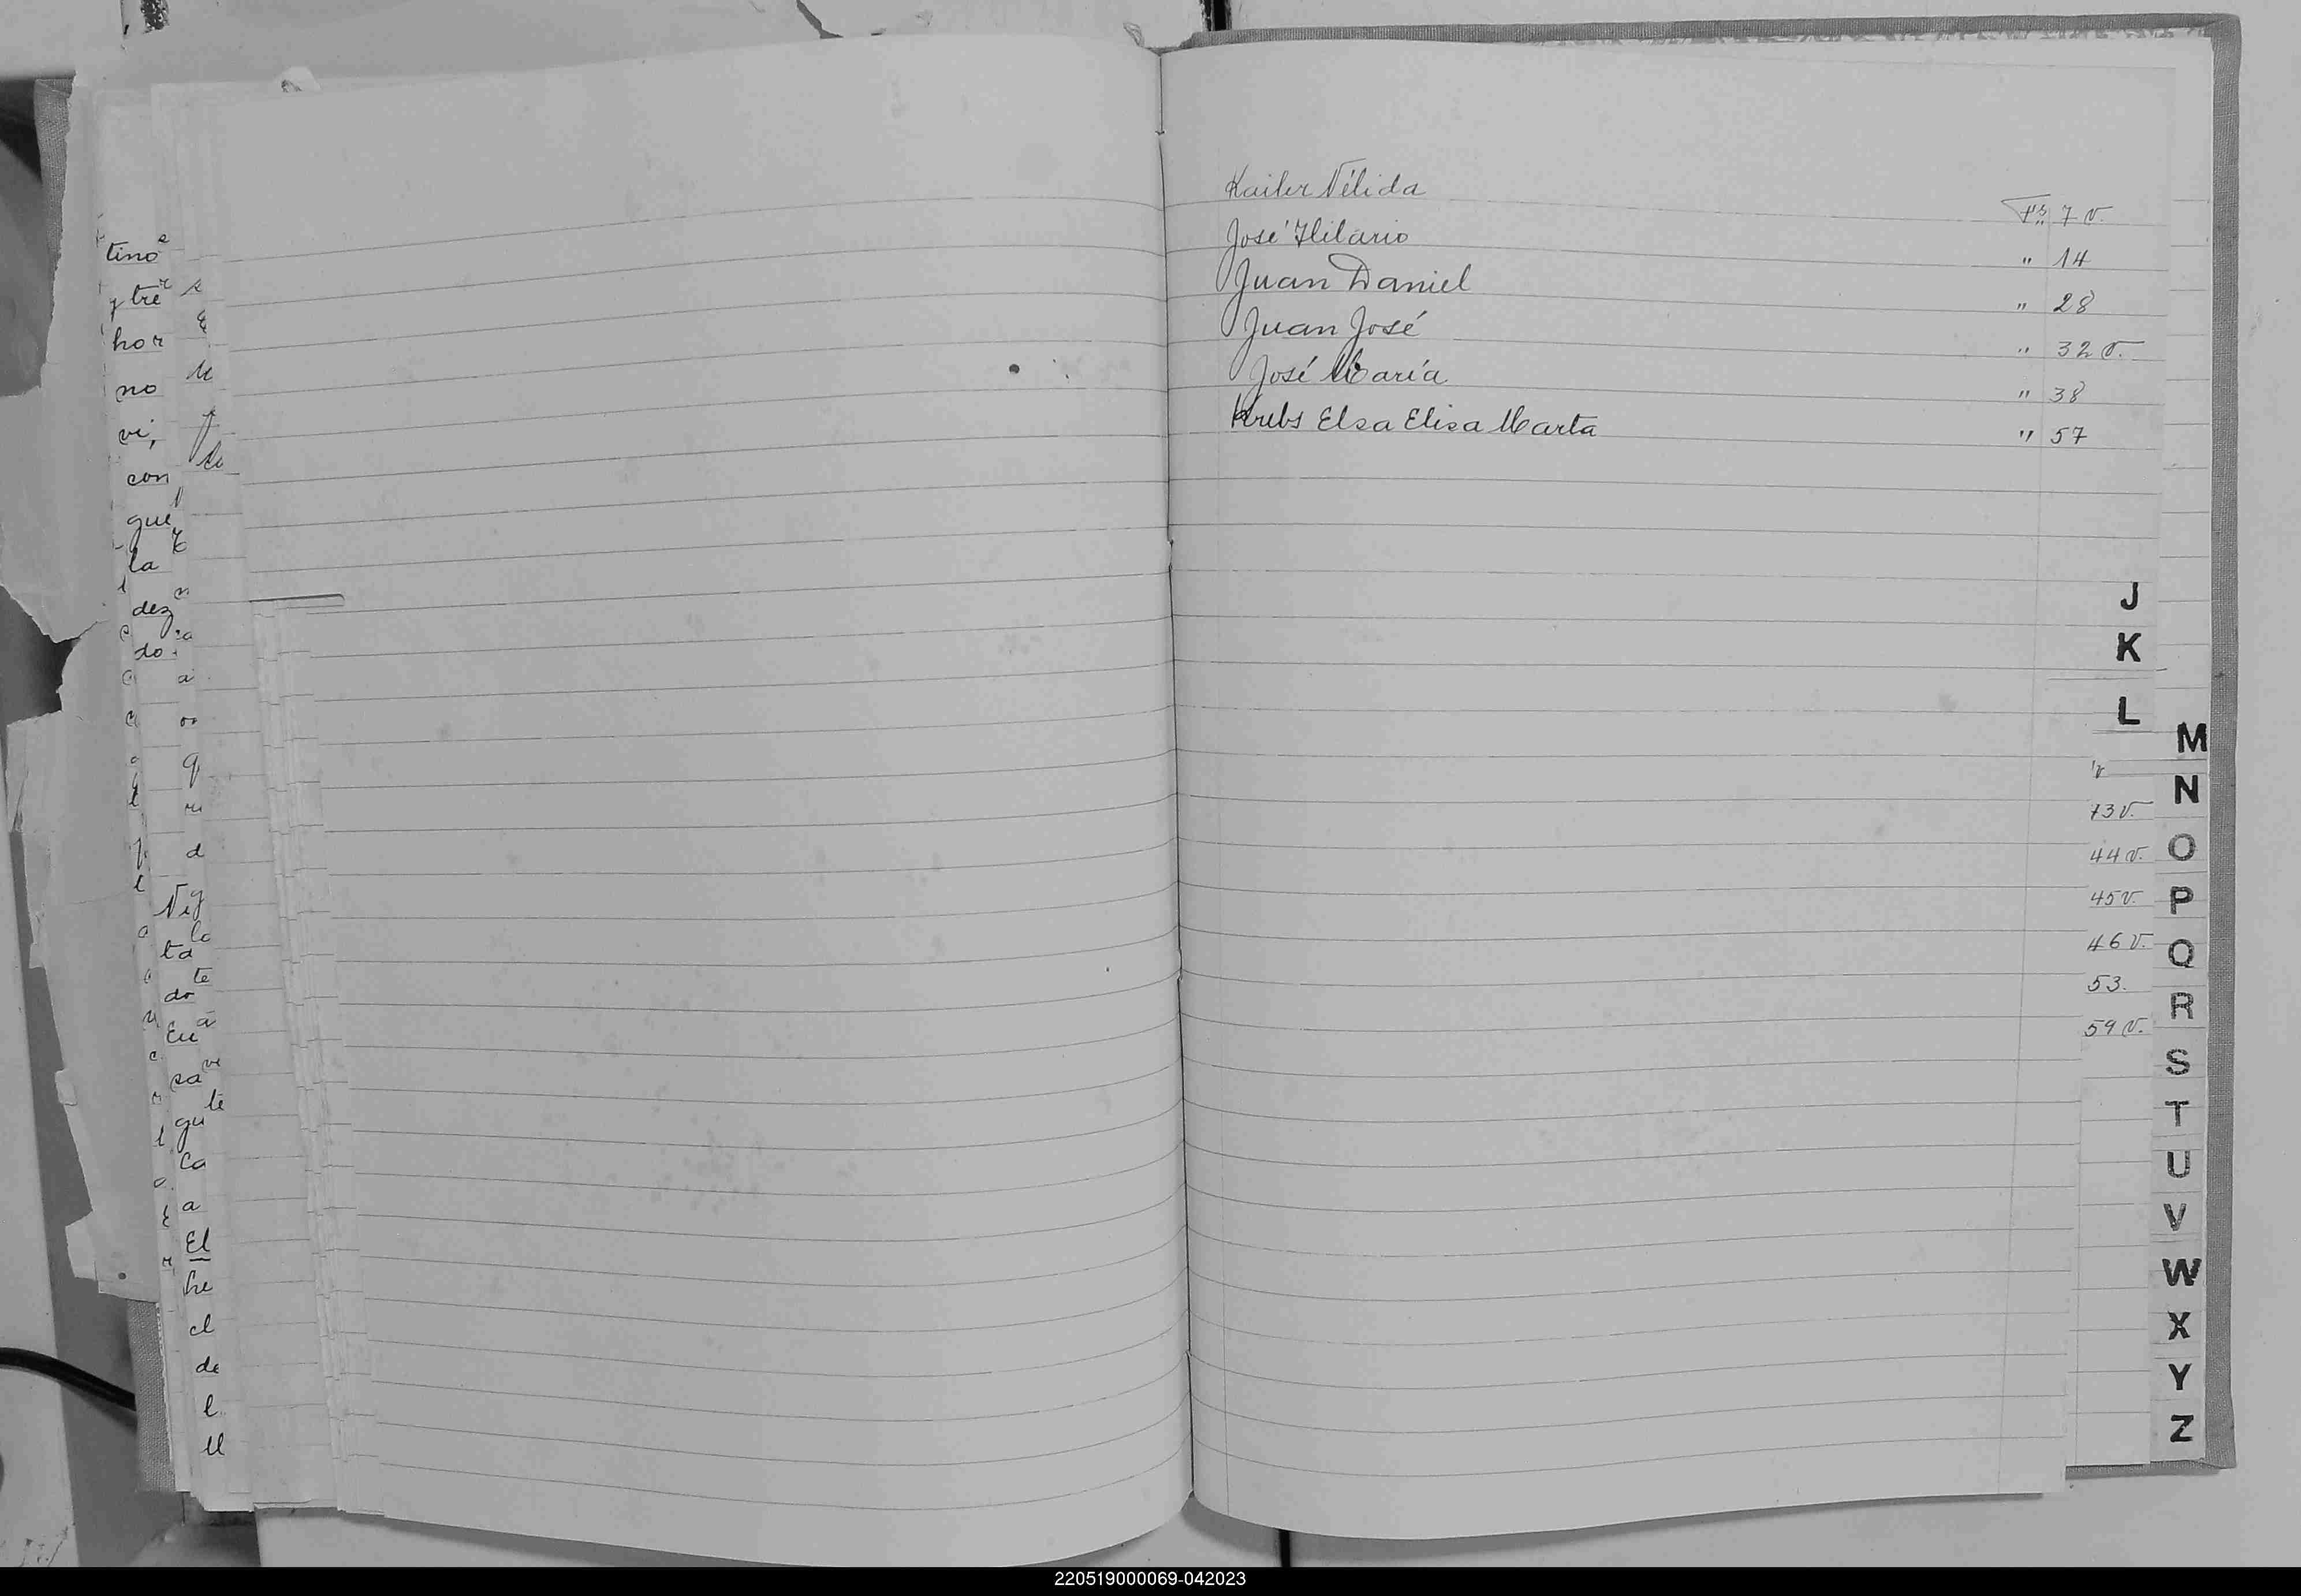 tino
y tre
hor
no
vi,
con
que
la
dez
do
Kailer Nélida Fs 7 v.
José Hilario " 14
Juan Daniel " 28
Juan José " 32 v.
José María " 38
Krebs Elsa Elisa Marta " 57
J
K
L
M
N
13 v.
O
44 v.
P
45 v.
Q
46 v.
53.
R
59 v.
S
T
U
V
W
X
Y
Z
ta
do
Eu
sa
gu
ca
a
El
he
el
de
l
ll
220519000069-042023